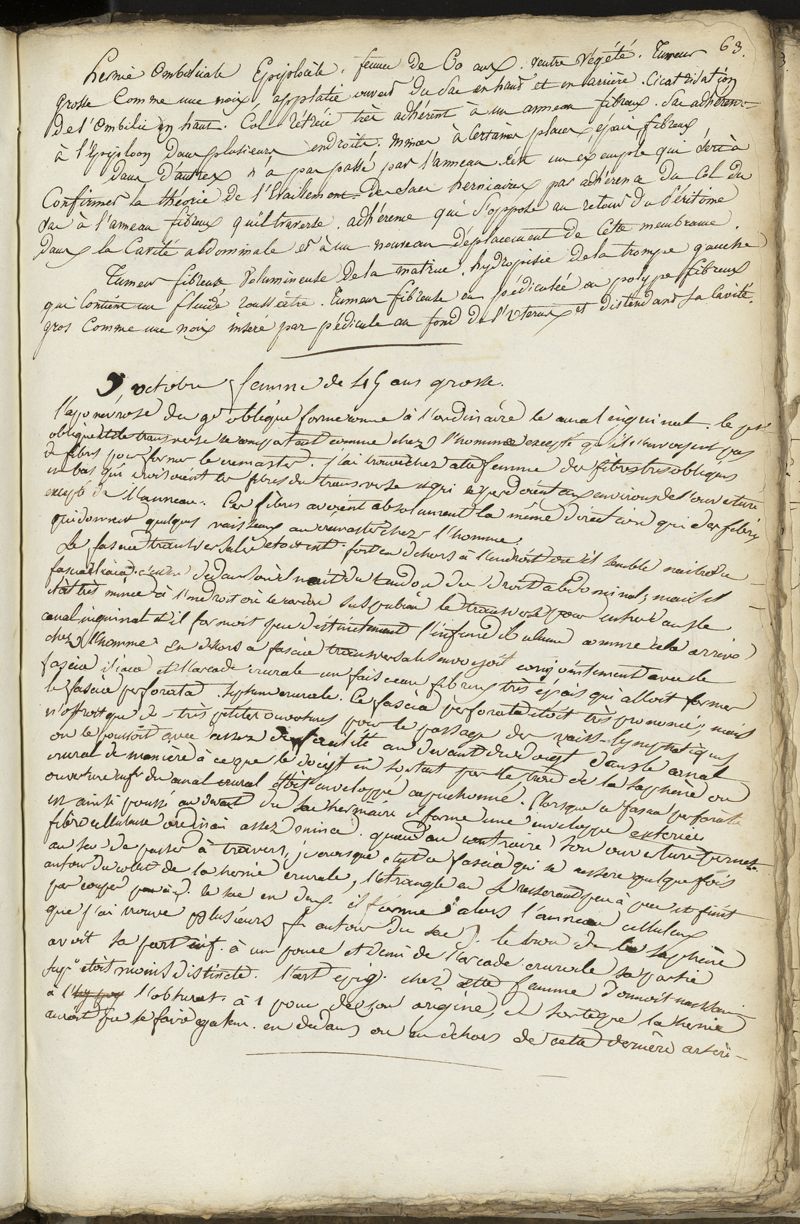 63.
hernie ombilicale Epiplocèle. femme de 60 ans. ventre végété. Tumeur
grosse comme une noix, applatie ouvert du sac en haut et en arrière. Cicatrisation
de l'ombilic en haut. Col rétréci très adhérent à un anneau fibreux. Sac adhérent
à l'Epiploon dans plusieurs endroits. mince à certaines places épais fibreux
dans d'autres n'a pas passé par l'anneau. est un exemple qui sert à
confirmer la théorie de l'Eraillement des sacs herniaires par adhérence du Col du
sac à l'anneau fibreux qu'il traverse. adhérence qui s'oppose au retour du Péritoine
dans la Cavité abdominale et à un nouveau déplacement de cette membrane.
Tumeur fibreuse volumineuse de la matrice. hydropisie de la trompe gauche
qui contient un fluide roussâtre. Tumeur fibreuse ou pédiculée ou polype fibreux
gros comme une noix insere par pédicule au fond de l'uterus et distendant sa cavité.
9 octobre femme de 45 ans grosse.
l'aponévrose du gd oblique forme comme à l'ordinaire le canal inguinal. le pt
oblique et le transverse se comportant comme chez l'homme excepté qu'ils n'envoyent pas
de fibres pour former le cremaster. j'ai trouvé chez cette femme des fibres très obliques
en bas qui croisoient les fibres du transverse et qui se perdoient aux environs de l'ouverture
de l'anneau. Ces fibres avoient absolument la même direction que des fibres
qui donnent quelques vaisseaux au cremaster chez l'homme.
Le fascia transversalis etoit fort en dehors à l'endroit où il semble naitre du
fascia iliaca en dedans où il nait du tendon du droit abdominal; mais il
était très mince à l'endroit où le cordon suspubien le traverse pour entrer dans le
canal inguinal et il formoit que distinctement l'infundibulum comme cela arrive
chez l'homme. En dehors le fascia transversalis envoyoit conjointement avec le
fascia iliaca et l'arcade crurale un faisceau fibreux très épais qui alloit former
le fascia perforata. septum crurale. Ce fascia perforata étoit très prononcé, mais
n'offroit que de très petites ouvertures pour le passage des vaiss. lymphatiques
on le poussoit avec assez de facilité au devant du doigt dans le canal
crural de manière à ce que le doigt en sortant par le trou de la saphène ou
ouverture inf. du canal crural étoit enveloppé capuchonné. lorsque ce fascia perforata
est ainsi poussé au devant du sac herniaire il forme une enveloppe exterieure
fibro celluleuse ordinairt assez mince. quand au contraire son ouverture permet
au sac de passer à travers, je crois que c'est ce fascia qui se resserre quelque fois
autour du collet de la hernie crurale, l'étrangle en se resserant peu à peu et finit
par couper le sac en deux. il forme alors l'anneau celluleux
que j'ai trouvé plusieurs f. autour du sac. le trou de la saphène
avoit sa part. inf. à un pouce et demi de l'arcade crurale sa partie
supre étoit moins distincte. l'art. epig. chez cette femme donnoit naissance
à l'obturat. à 1 pouce de son origine, de sorte que la hernie
auroit pu se faire egalem. en dedans ou en dehors de cette dernière artère